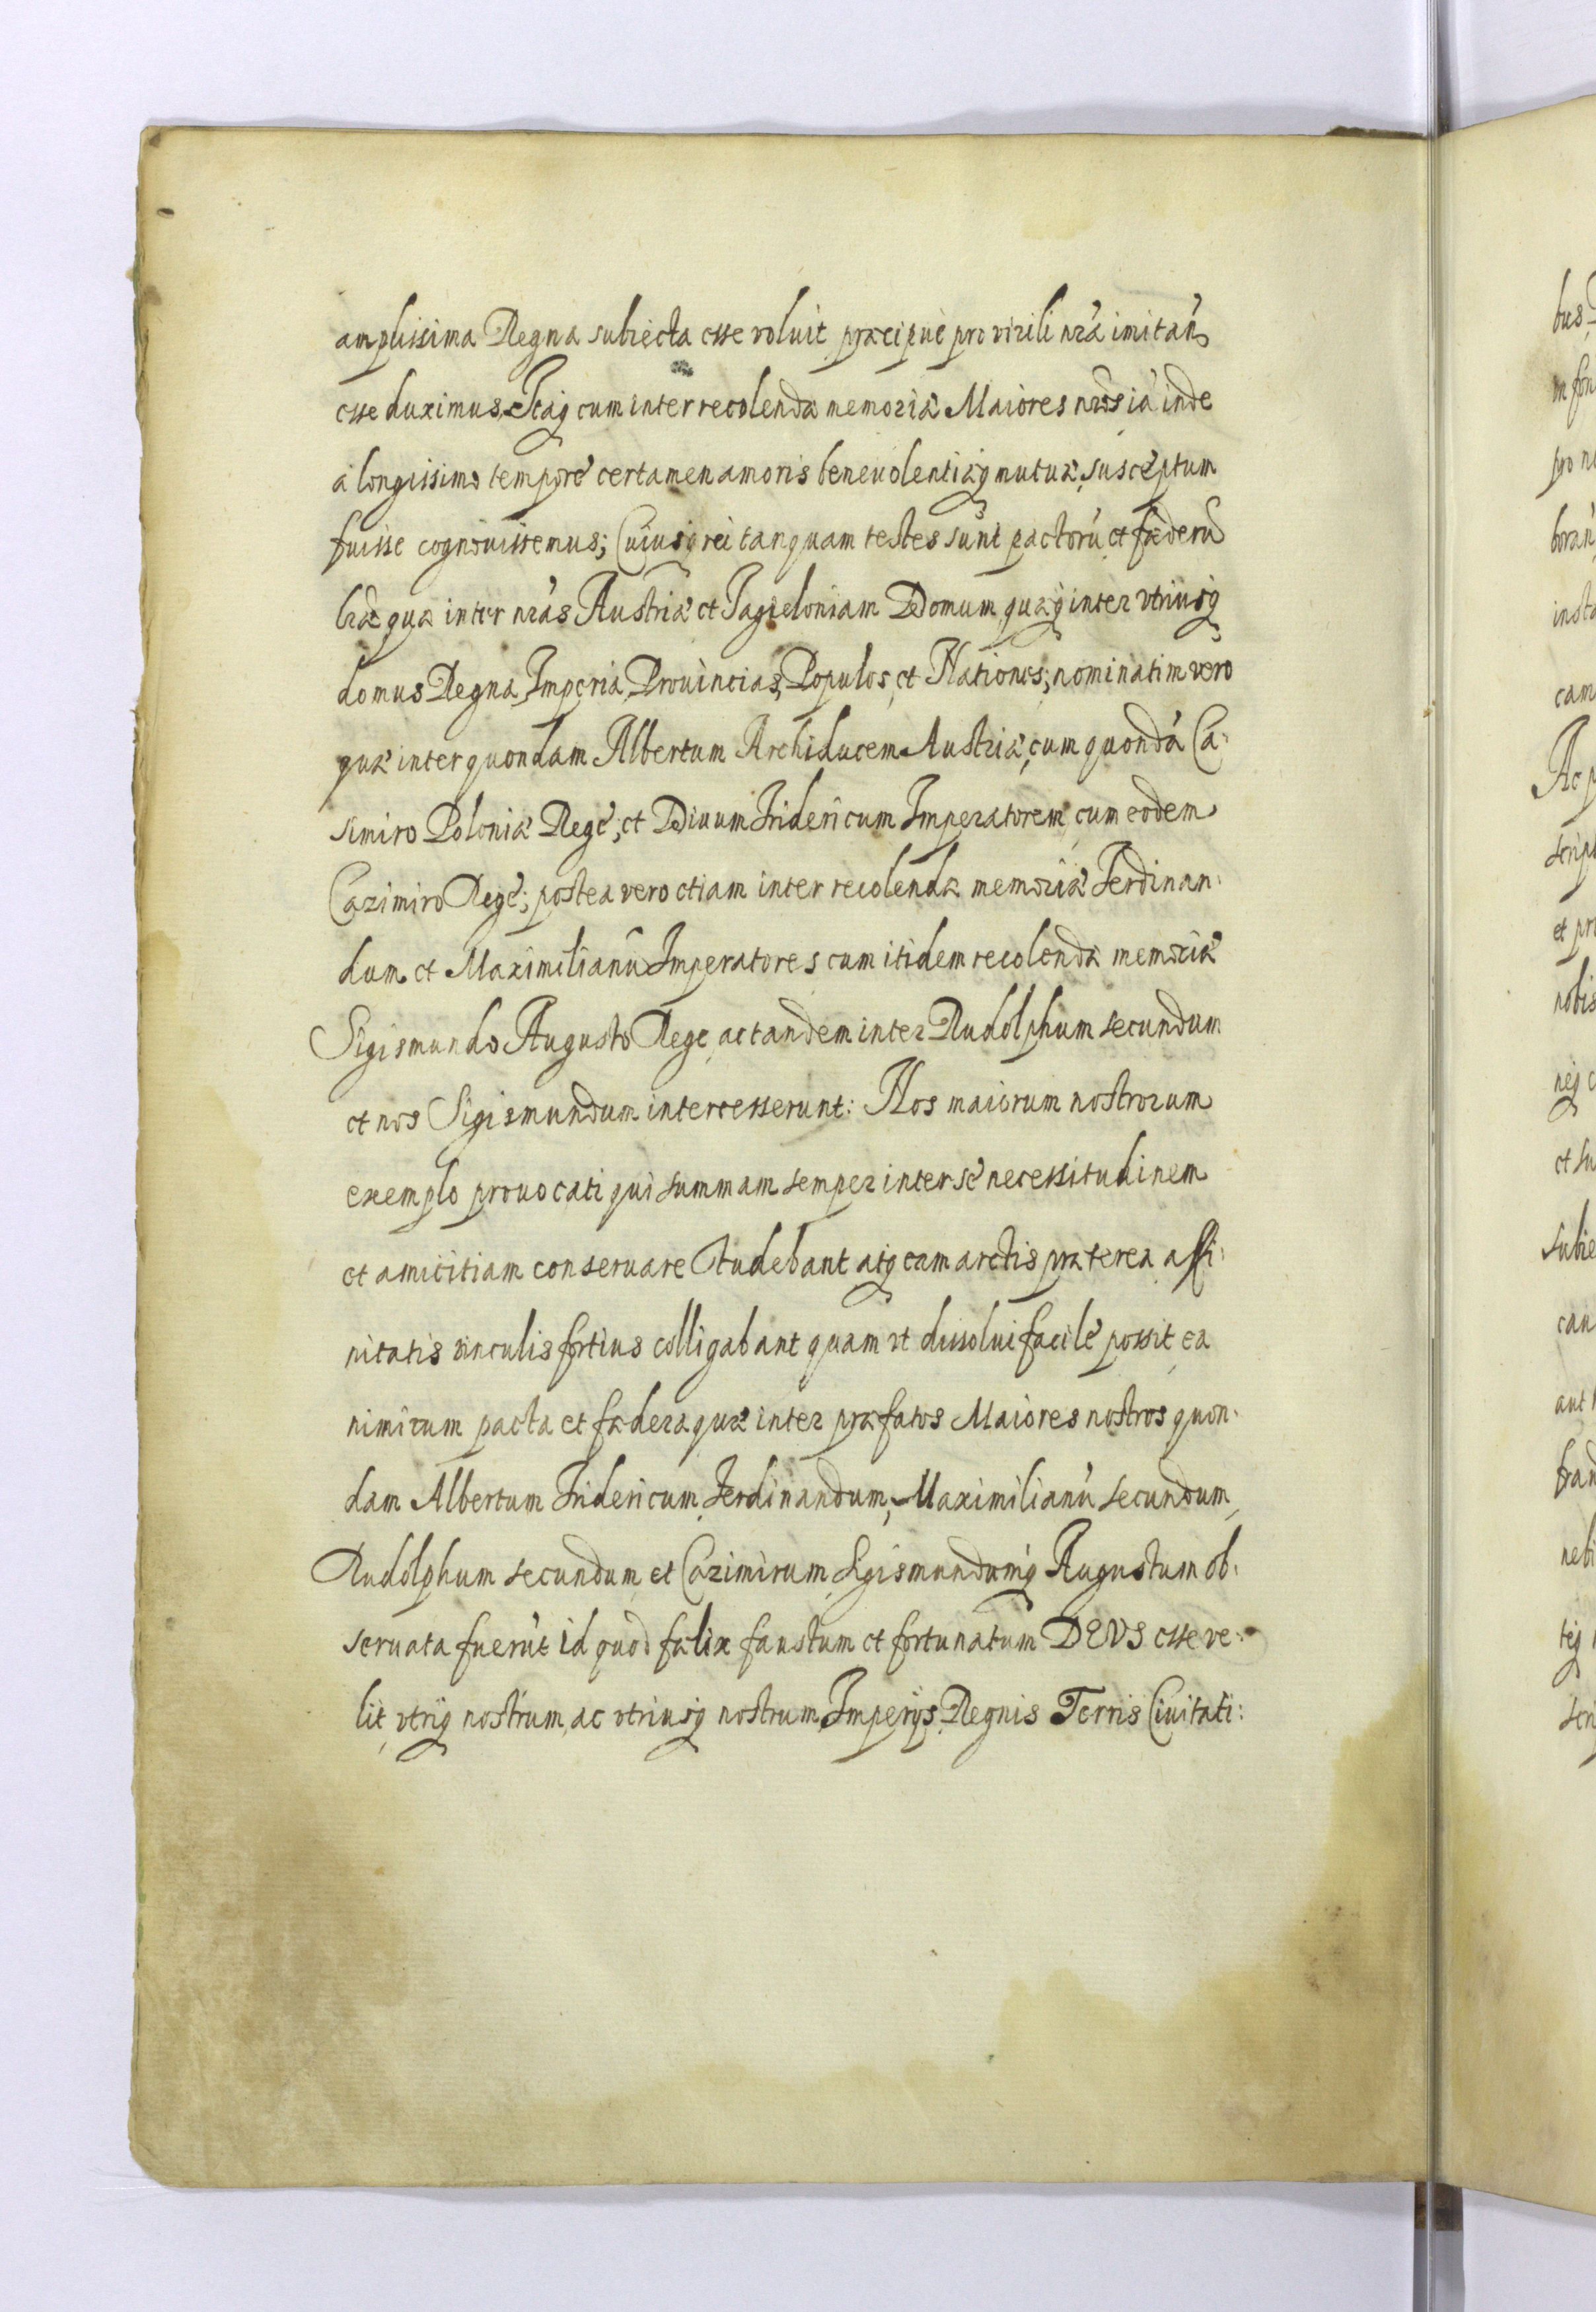 amplissima Regna subiecta esse voluit præcipuè pro virili nr̃a imitan̄
esse duximus. Itaq cum inter recolendæ memoriæ Maiores nr̃os iã inde
à longissimo temporé certamen amoris beneuolentiæq mutuæ, susceptum
fuisse cognouissemus; Cuiusq rei tanquam testes sunt pactorũ et fæderũ
lr̃æ quæ inter nr̃as Austriã et Jagieloniam Domum quæq inter vtriusq
domus Regna, Imperia, Prouincias, Populos, et Nationes; nominatim vero
quæ inter quondam Albertum Archiducem Austriæ, cum quondã Ca:
simiro Poloniæ Regé; et Diuum Fridericum Imperatorem, cum eodem
Cazimiro Regé; postea vero etiam inter recolendæ memoriæ Ferdinan:
dum et Maximilianũ Imperatores cum itidem recolendæ memoriæ
Sigismundo Augusto Rege, ac tandem inter Rudolphum secundum
et nos Sigismundum intercesserunt: Nos maiorum nostrorum
exemplo prouocati qui summam semper inter sé necessitudinem
et amicitiam conseruare studebant atq eam arctis præterea affi:
nitatis vinculis fortius colligabant quam vt dissolui facilé possit, ea
nimirum pacta et fædera quæ inter præfatos Maiores nostros quon:
dam Albertum Fridericum, Ferdinandum, Maximilianũ secundum,
Rudolphum secundum, et Cazimirum, Sigismundumq Augustum ob:
seruata fuerũt id quod fælix faustum et fortunatum DEVS esse ve:
lit, vtriq nostrum, ac vtriusq nostrum, Imperijs, Regnis Terris Ciuitati: